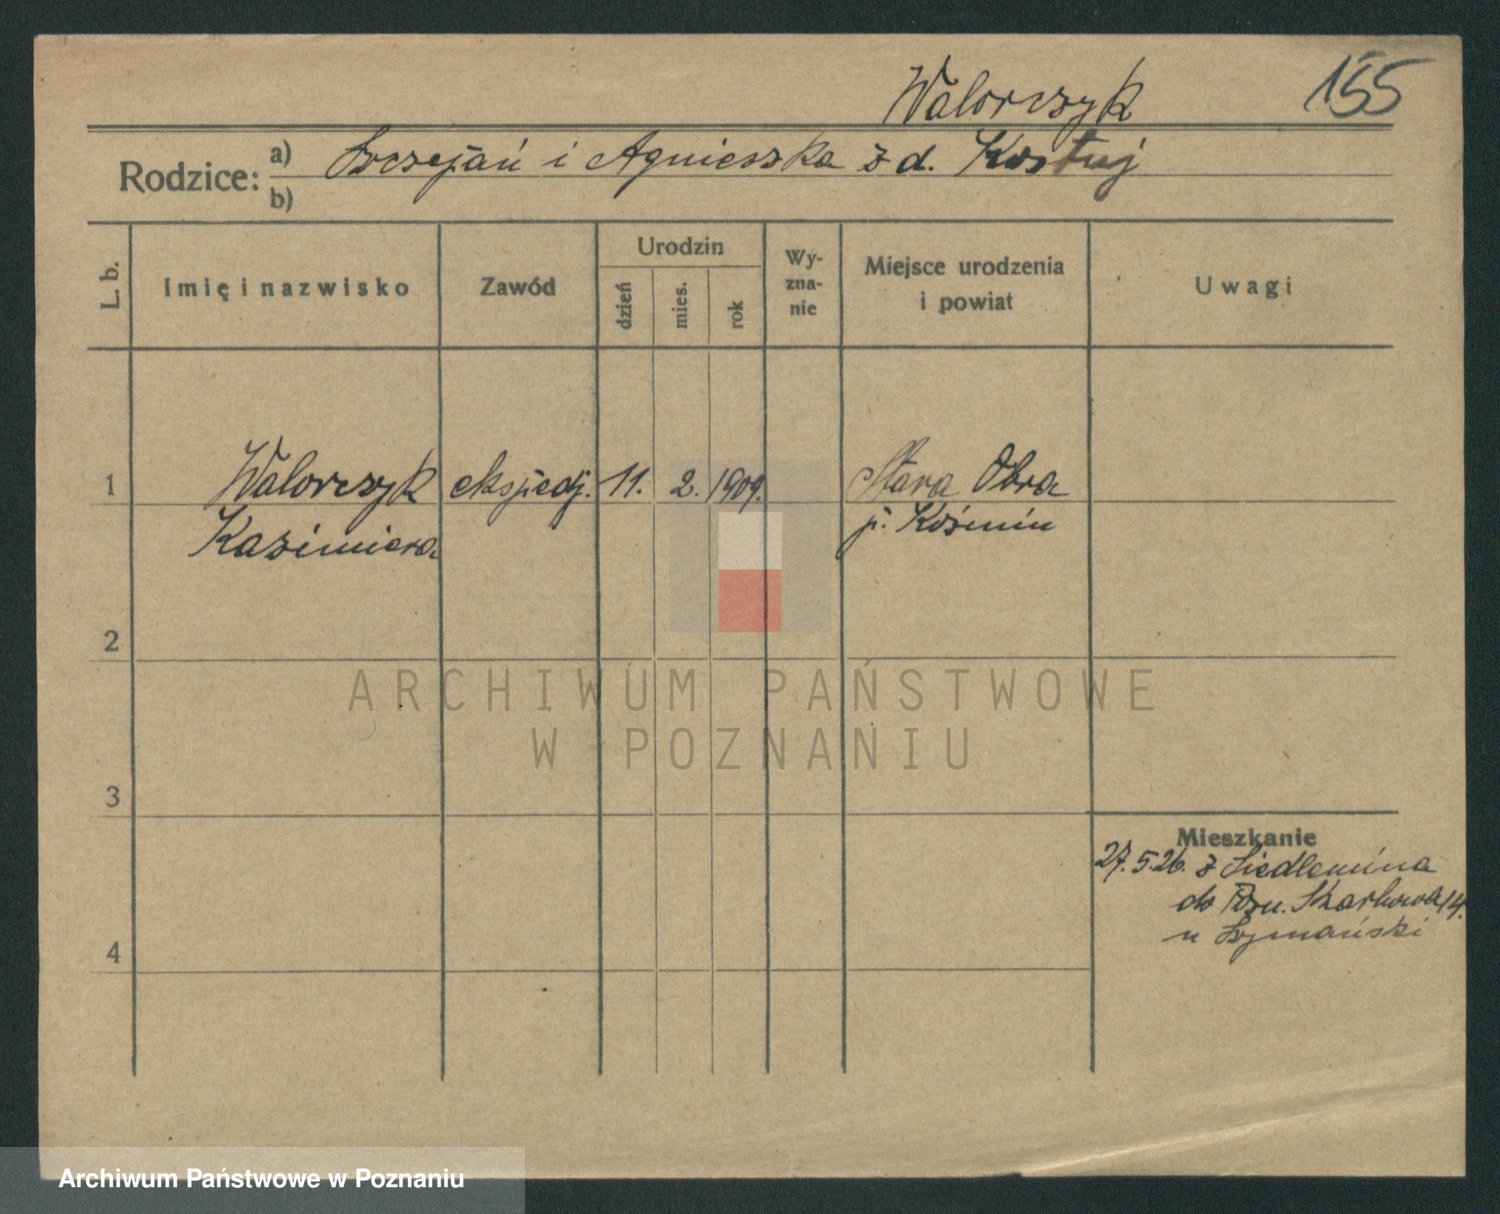 Walorczyk 155
Rodzice: a) Szczepan i Agnieszka z d. Kostuj
b)
L. b. Imię i nazwisko Zawód Urodzin dzień mies. rok Wy-zna-nie Miejsce urodzenia i powiat Uwagi
1 Walorczyk ekspedj. 11. 2. 1909. Stara Obra
Kazimiera p. Koźmin
2
ARCHIWUM PAŃSTWOWE
W POZNANIU
3
Mieszkanie
27.5.26. z Siedlemina
do Pozn. 14.
4 u Szymański
Archiwum Państwowe w Poznaniu